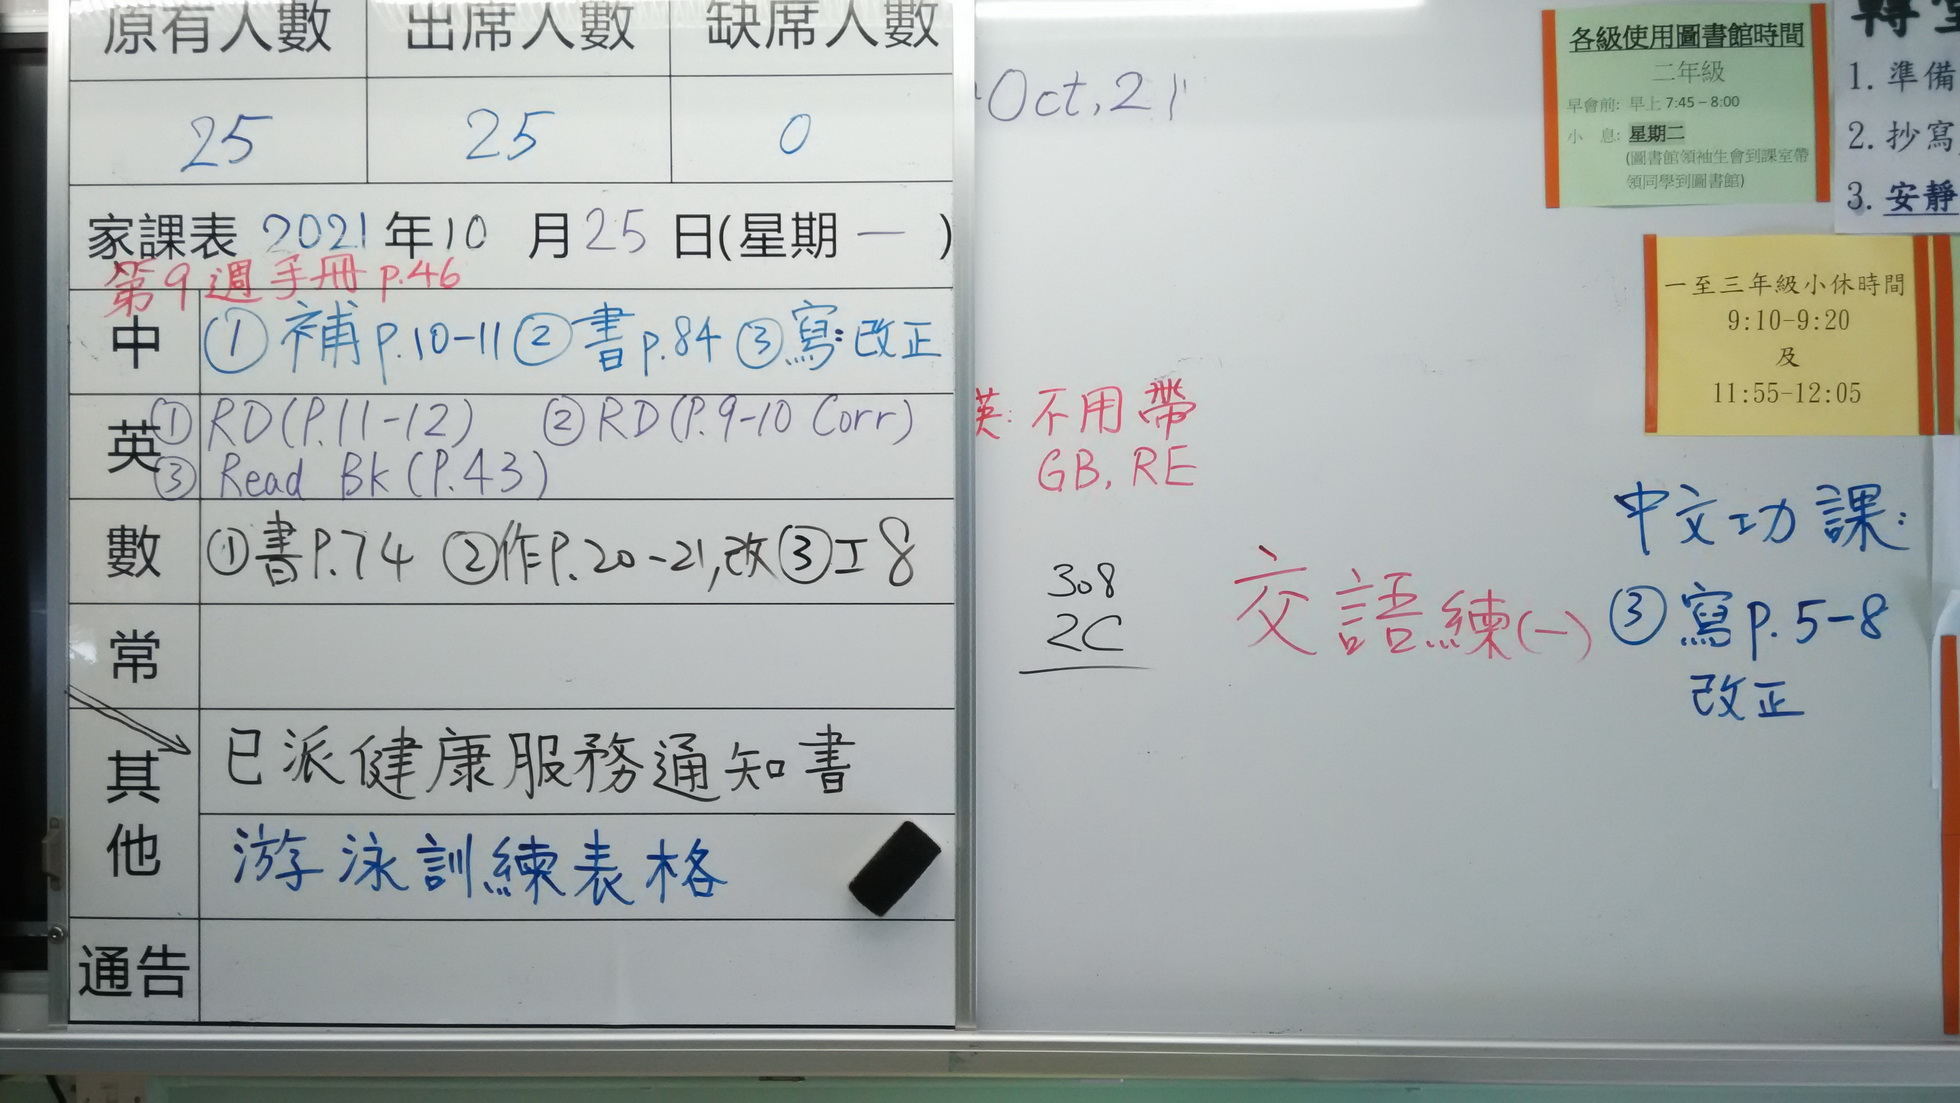 原有人數 出席人數 缺席人數
25 25 0
家課表 2021年10月25日(星期一)
第9週手冊 p.46
中 ①補p.10-11 ②書p.84 ③寫:改正
英 ①RD(P.11-12) ②RD(P.9-10 Corr)
③Read BK(P.43)
數 ①書P.74 ②作P.20-21,改 ③工8
常
其他 已派健康服務通知書
游泳訓練表格
通告
Oct, 21
英: 不用帶
GB, RE
308
2C
交語練(一)
中文功課:
③寫p.5-8
改正
各級使用圖書館時間
二年級
早會前: 早上 7:45 – 8:00
小 息: 星期二
(圖書館領袖生會到課室帶
領同學到圖書館)
一至三年級小休時間
9:10-9:20
及
11:55-12:05
1. 準備
2. 抄寫
3. 安靜